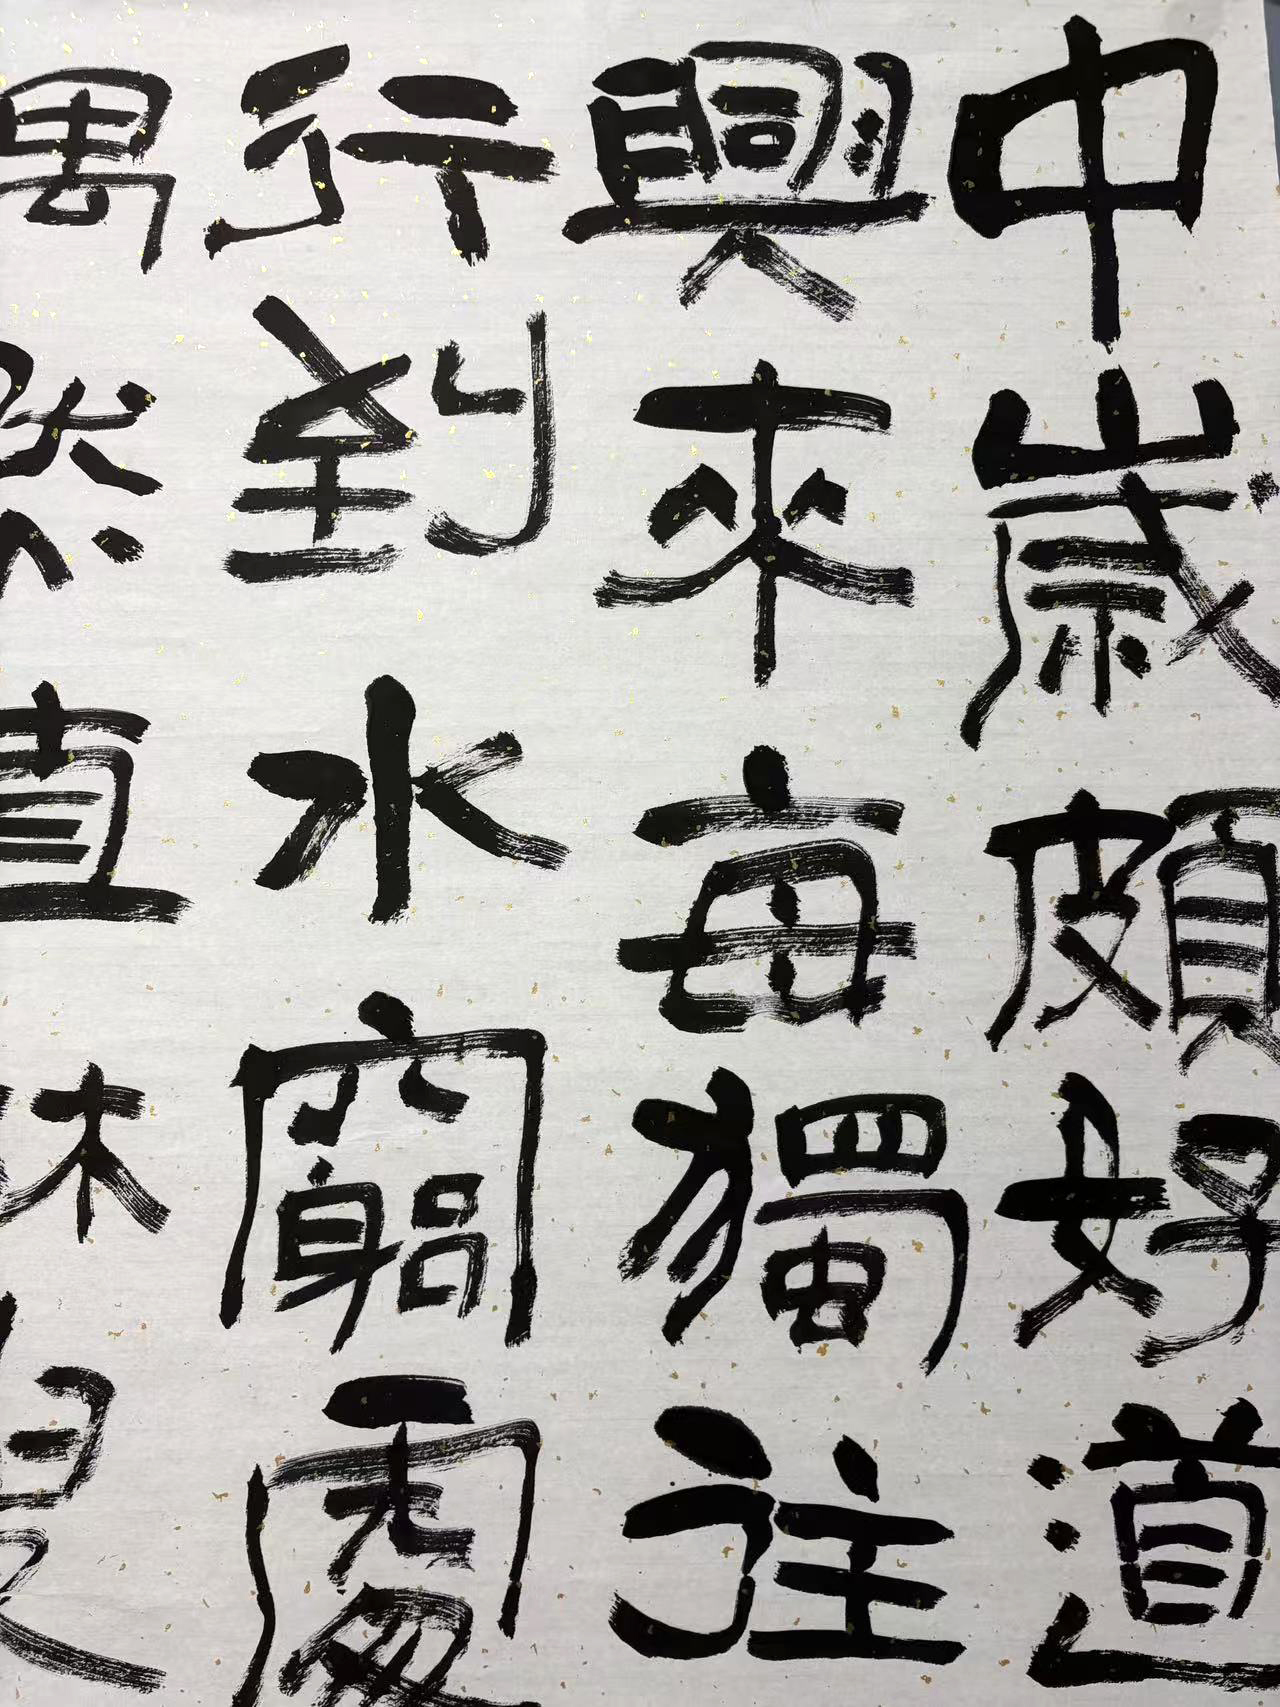 中歲頗好道
興來每獨往
行到水窮處
偶然值林叟